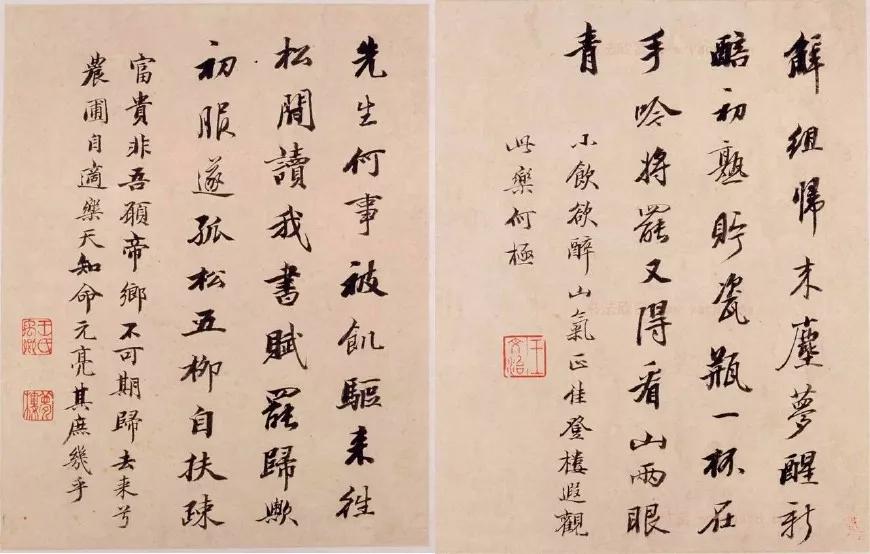 觧組歸来塵夢醒新
醅初熟貯瓷瓶一杯在
手吟將罷又得看山兩眼
青
小飲欲醉山氣正佳登樓遐觀
此樂何極
王文治
先生何事被飢驅来往
松間讀我書賦罷歸歟
初服遂孤松五柳自扶疎
富貴非吾願帝鄉不可期歸去来兮
農圃自適樂天知命元亮其庶幾乎
王氏禹卿
夢樓